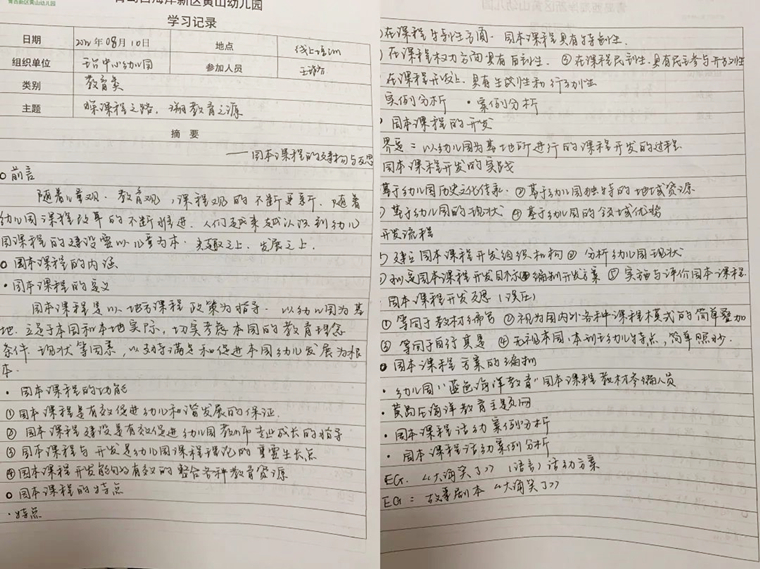 青岛西海岸新区黄山幼儿园
学习记录
日期 2022年08月10日 地点 线上培训
组织单位 中心幼儿园 参加人员
类别 教育类
主题 探课程之路,溯教育之源
摘 要
——园本课程的建构与反思
前言
随着儿童观、教育观、课程观的不断更新,随着
幼儿园课程改革的不断推进,人们越来越认识到幼儿
园课程的建设需以儿童为本,兴趣之上,发展之上。
园本课程的内涵
·园本课程的含义
园本课程是以地方课程政策为指导,以幼儿园为基
地,立足于本园和本地实际,切实考虑本园的教育理念
条件、现状等因素,以期满足和促进本园幼儿发展为根
本.
·园本课程的功能
①园本课程是有效促进幼儿和谐发展的保证.
②园本课程建设是有效促进幼儿园教师专业成长的指导
③园本课程与开发是幼儿园课程理论的重要生长点
④园本课程开发能够有效的整合各种教育资源
园本课程的特点
·特点
在课程与特性方面,园本课程具有特色性.
在课程权力方面具有自主性. 在课程民主性,具有民主参与开放性
在课程开发上,具有生成性和行动性
案例分析 ·案例分析
园本课程的开发
界定=以幼儿园为基地所进行的课程开发的过程.
园本课程开发的实践
基于幼儿园历史文化传承. ②基于幼儿园独特的地域资源
基于幼儿园的现状 ④基于幼儿园的领域优势
开发流程
建立园本课程开发组织机构 ② 分析幼儿园现状
拟定园本课程开发目标 编制开发方案 ⑤实施与评价园本课程
园本课程开发反思(误区)
①等同于教材编写 ②视为国内外各种课程模式的简单叠加
③ 等同于自行其是 ④ 无视本园、本班幼儿特点,简单照抄.
园本课程方案的编制
·幼儿园“蓝色海洋教育”园本课程教材参编人员
·黄岛区海洋教育主题网
·园本课程活动案例分析
·园本课程活动案例分析
EG. 《大海笑了》(语言)活动方案
EG= 故事剧本《大海笑了》